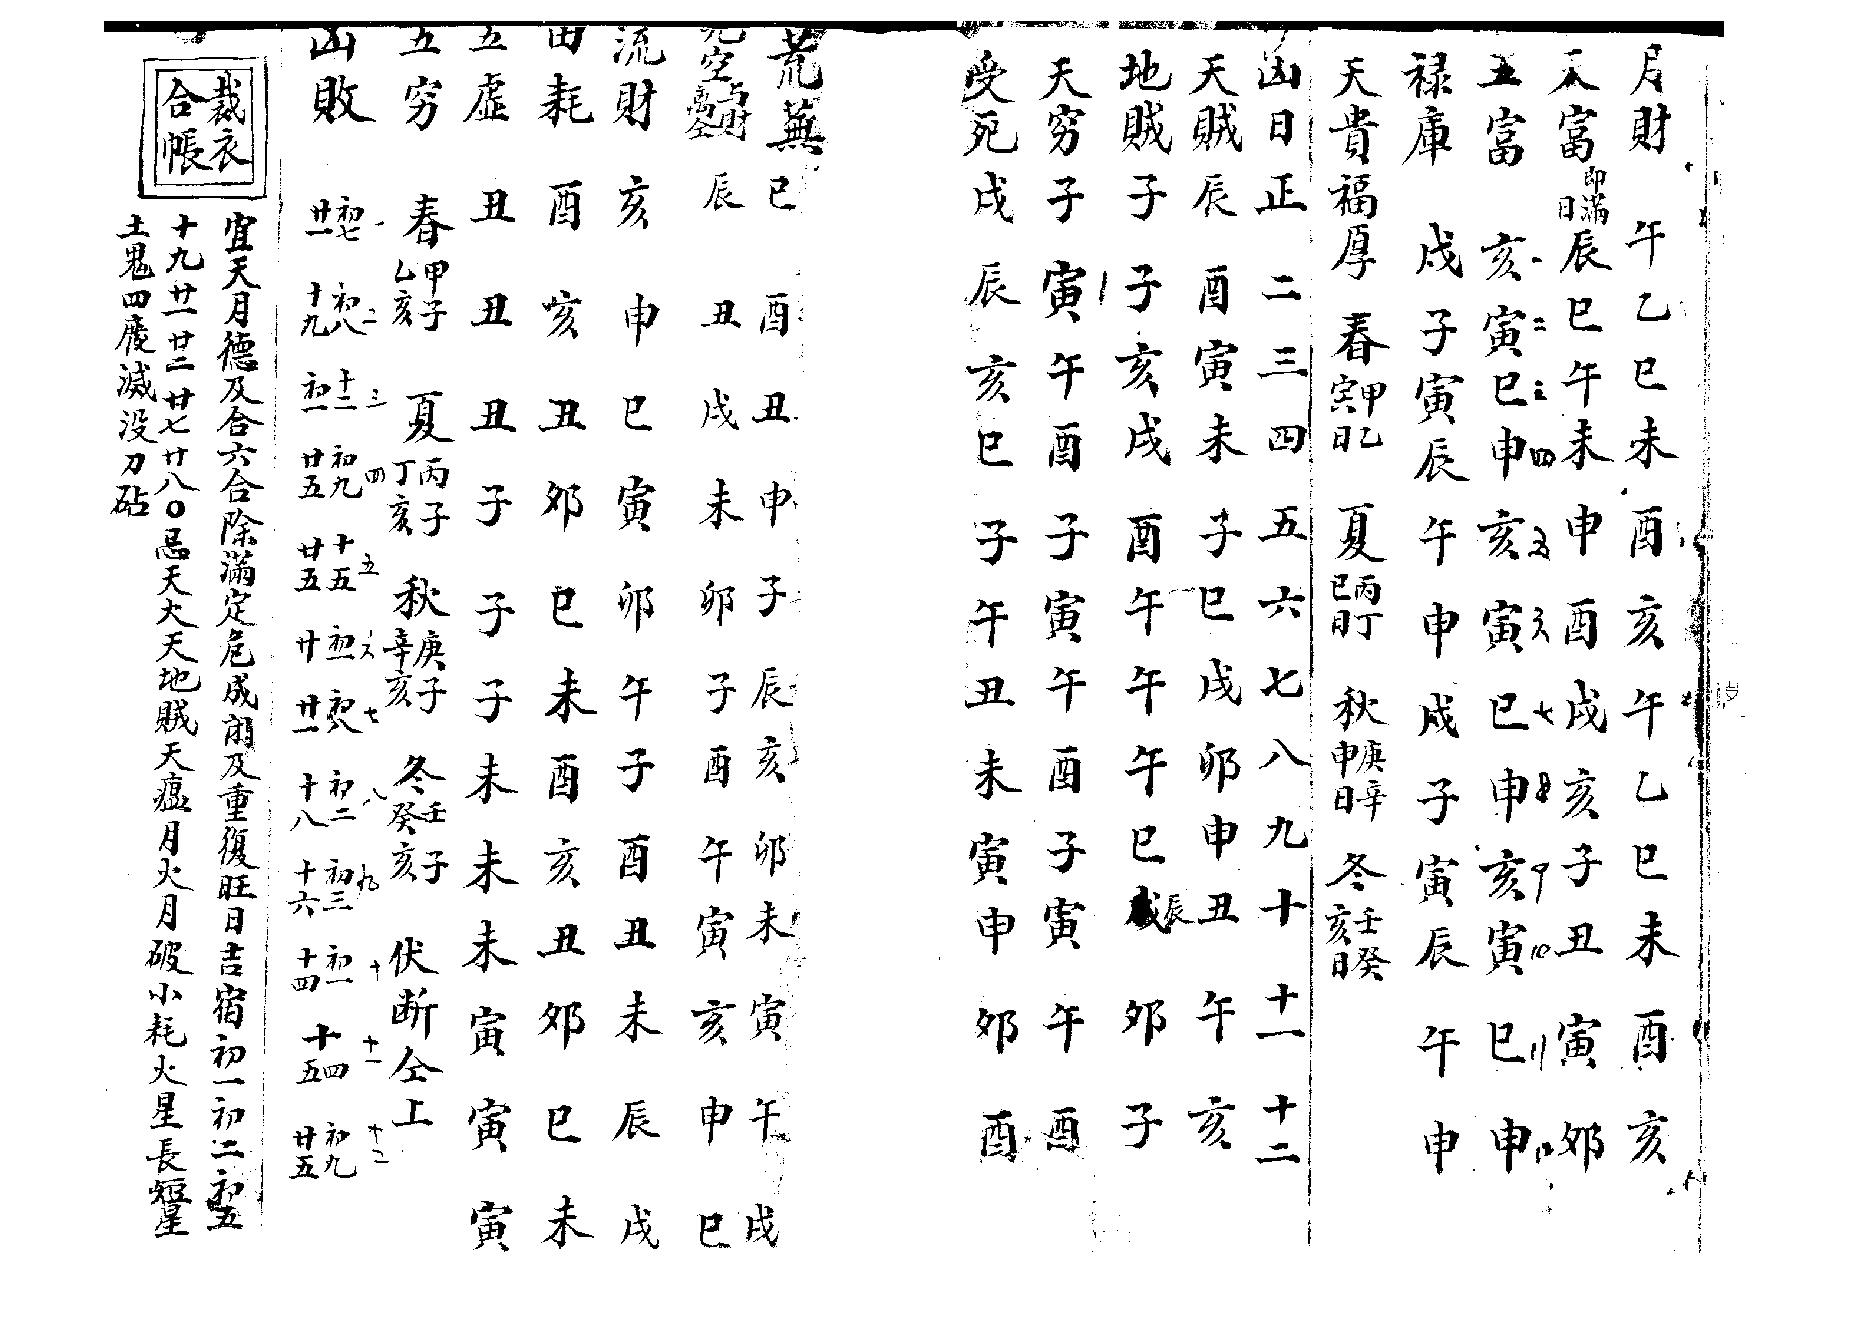 月財 午乙巳未酉亥午乙巳未酉亥
天富 即滿日 辰巳午未申酉戌亥子丑寅夘
五富 亥寅巳申亥寅巳申亥寅巳申
一二三四五六七八九十十一十二
禄庫 戌子寅辰午申戌子寅辰午申
天貴福厚 春甲乙寅日 夏丙丁巳日 秋庚辛申日 冬壬癸亥日
凶日正二三四五六七八九十十一十二
天賊辰酉寅未子巳戌卯申丑午亥
地賊子子亥戌酉午午午巳辰夘子
天穷子寅午酉子寅午酉子寅午酉
受死戌辰亥巳子午丑未寅申夘酉
荒蕪巳酉丑申子辰亥卯未寅午戌
辰丑戌未卯子酉午寅亥申巳
流財亥申巳寅卯午子酉丑未辰戌
田耗酉亥丑夘巳未酉亥丑夘巳未
五虛丑丑丑子子子未未未寅寅寅
五穷 春甲子乙亥 夏丙子丁亥 秋庚子辛亥 冬壬子癸亥 伏断仝上
凶敗 一初七廿一 二初八十九 三十二初一 四初九廿五 五十五廿五 六初一廿 七初八廿一 八初二十八 九初三十六 十初一十四 十一十四十五 十二初九廿五
裁衣合帳
宜天月德及合六合除滿定危成開及重復旺日吉宿初一初二初五
十九廿一廿二廿七廿八〇忌天火天地賊天瘟月火月破小耗火星長短星
土鬼四廢滅没刀砧